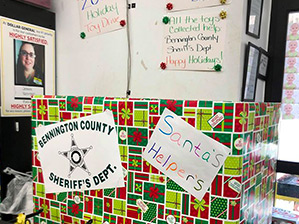 DOLLAR GENERAL
HIGHLY SATISFIED.
Holiday
Toy Drive
All the toys
Collected help
Bennington County
Sheriff's Dept
Happy Holidays!
BENNINGTON COUNTY
SHERIFF'S DEPT.
Santa's
Helpers